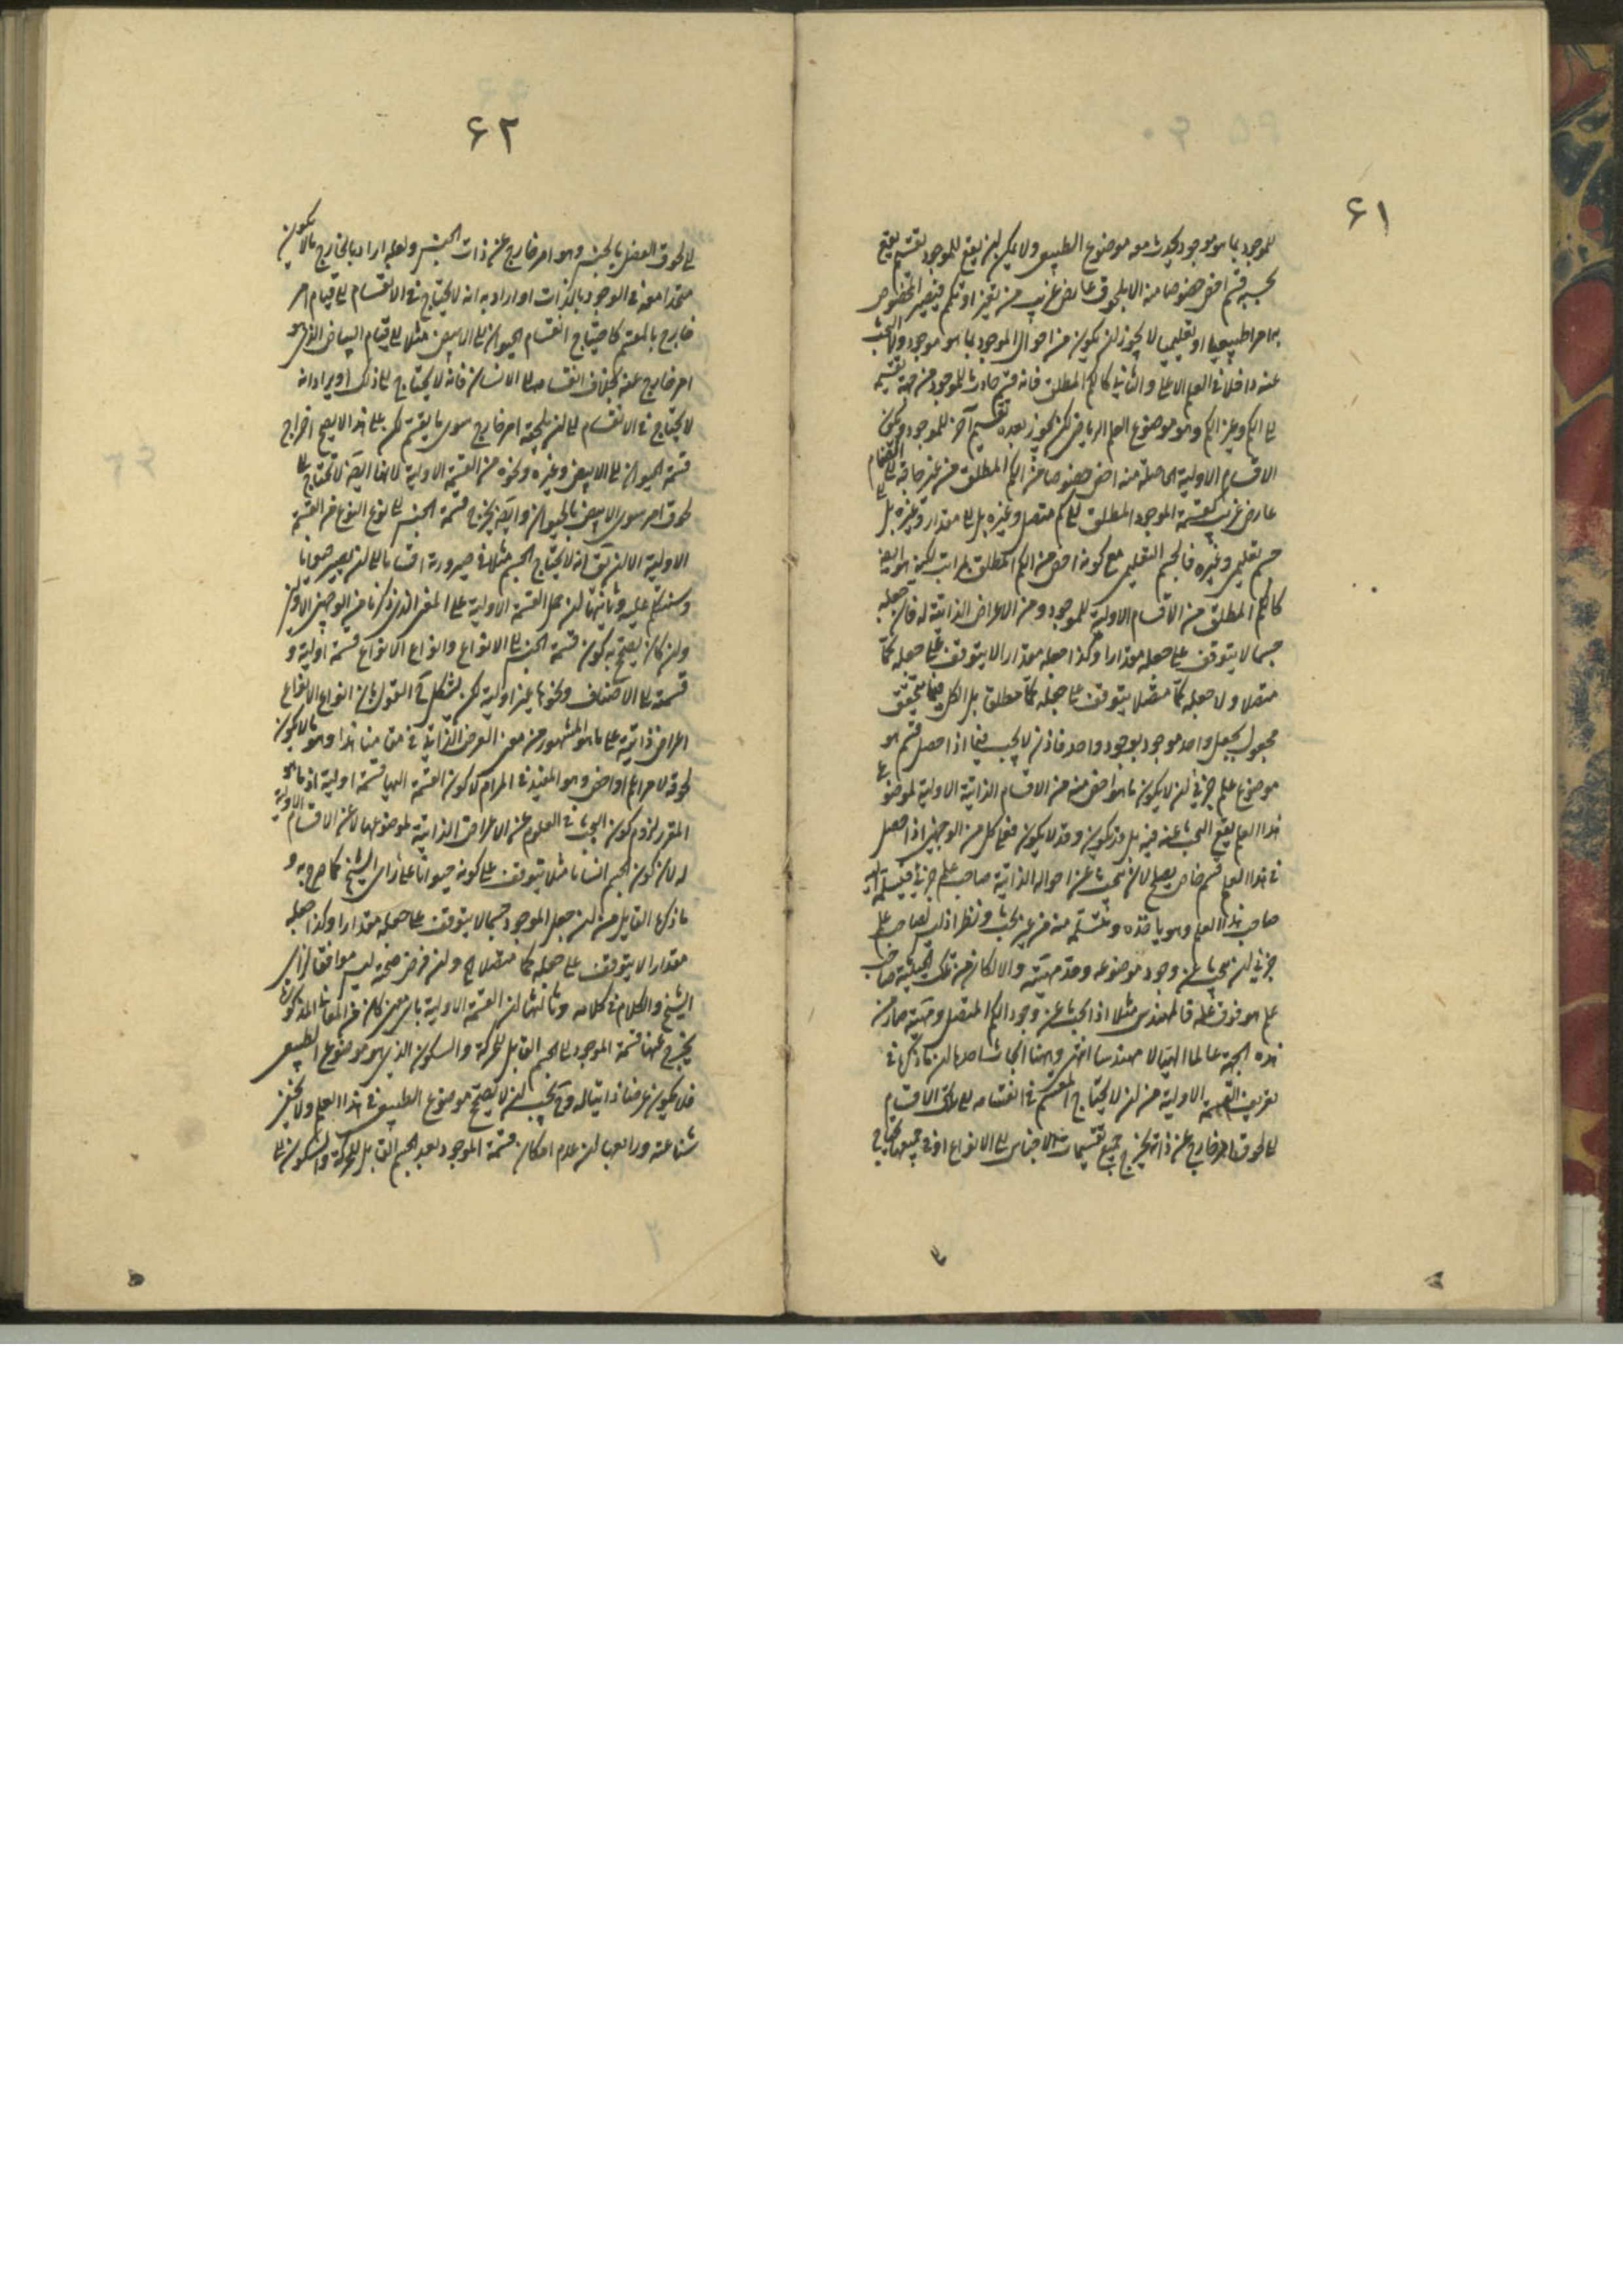 ۶۱
للموجود بما هو موجود يحدث منه موضوع الطبيعي ولا يمكن ان يقع للموجود تقسيم يقع
بحسبه قسم اخص خصوصا منه الا بلحوق عارض غريب من تغير او تكمم فيصير المخصوص
به امرا طبيعيا او تعليميا لا يجوز ان يكون من احوال الموجود بما هو موجود ولا البحث
عنه داخلا في العلم الاعلى والثاني كالكم المطلق فانه قسم حادث للموجود من جهة تقسيمه
الى الكم وغير الكم وهو موضوع العلم الرياضي لكن يجوز بعده تقسيم آخر للموجود ولحوق
الاقسام الاولية الحاصلة منه اخص خصوصا من الكم المطلق من غير حاجة الى انضمام
عارض غريب كقسمة الموجود المطلق الى كم متصل وغيره بل الى مقدار وغيره بل الى
جسم تعليمي وغيره فالجسم التعليمي مع كونه اخص من الكم المطلق بمراتب لكنه ايضا
كالكم المطلق من الاقسام الاولية للموجود ومن الاعراض الذاتية له فان جعله
جسما لا يتوقف على جعله مقدارا وكذا جعله مقدارا لا يتوقف على جعله كما
متصلا ولا جعله كما متصلا يتوقف على جعله كما مطلقا بل الكل مما يتحقق
مجعول بجعل واحد موجود بوجود واحد فاذن لا يجب فيما اذا حصل قسم هو
موضوع علم جزئي ان لا يكون ما هو اخص منه من الاقسام الذاتية الاولية لموضوع
هذا العلم يقع البحث عنه فيه بل قد يكون وقد لا يكون ففي كل من الوجهين اذا حصل
في هذا العلم قسم خاص يصلح لان يبحث عن احواله الذاتية صاحب علم جزئي فيسلمه اليه
صاحب هذا العلم وهو ياخذه ويتسلمه منه من غير بحث ونظر اذ ليس لصاحب علم
جزئي ان يبحث عن وجود موضوعه وحد مهيته والا لكان من تلك الحيثية صاحب
علم هو فوق علمه فالمهندس مثلا اذا بحث عن وجود الكم المتصل ومهيته صار من
هذه الجهة عالما الهيا لا مهندسا انتهى وههنا ابحاث احدها ان ما ذكره في
تعريف القسمة الاولية من ان لا يحتاج المقسم في انقسامه الى تلك الاقسام
الى لحوق امر خارج عن ذاته يخرج جميع تقسيمات الاجناس الى الانواع اذ في جميعها يحتاج
۶۲
الى لحوق الفصل بالجنس وهو امر خارج عن ذات الجنس ولعله اراد بالخارج ما لا يكون
متحدا معه في الوجود بالذات او اراد به انه لا يحتاج في الانقسام الى قيام امر
خارج بالمقسم كاحتياج انقسام الحيوان الى الابيض مثلا الى قيام البياض الذي هو
امر خارج عنه بخلاف انقسامه الى الانسان فانه لا يحتاج الى ذلك او يراد انه
لا يحتاج في الانقسام الى ان يلحقه امر خارج سوى ما يقسم لكن على هذا لا يصح اخراج
قسمة الحيوان الى الابيض وغيره ونحوه من القسمة الاولية لانها ايضا لا تحتاج الى
لحوق امر سوى الابيض بالحيوان وايضا يخرج قسمة الجنس الى نوع النوع من القسمة
الاولية الا ان يق انه لا يحتاج الجسم مثلا في صيرورته انسانا الى ان يصير حيوانا
وسنتكلم عليه وثانيها ان حمل القسمة الاولية على المعنى الذي ذكرنا من الوجهين الاولين
وان كان يصح به كون قسمة الجنس الى الانواع وانواع الانواع قسمة اولية و
قسمته الى الاصناف ونحوها غير اولية لكن يشكل ح القول بان انواع الانواع
اعراض ذاتية على ما هو المشهور من معنى العرض الذاتي في مقامنا هذا وهو ما لا يكون
لحوقه لامر اعم او اخص وهو المفيد في المرام لا كون القسمة اليها قسمة اولية اذ ما هو
المقرر لزوم كون البحث في العلوم عن الاعراض الذاتية لموضوعها لا عن الاقسام الاولية
له لان كون الجسم انسانا مثلا يتوقف على كونه حيوانا على راى الشيخ كما صرح به و
ما ذكره القايل من ان جعل الموجود جسما لا يتوقف على جعله مقدارا وكذا جعله
مقدارا لا يتوقف على جعله كما متصلا الخ وان فرض صحته ليس موافقا لراى
الشيخ والكلام في كلامه وثالثها ان القسمة الاولية باى معنى كان من المعاني المذكورة
يخرج عنها قسمة الموجود الى الجسم القابل للحركة والسكون الذي هو موضوع الطبيعي
فلا يكون عرضا ذاتيا له وح يجب ان لا يصح موضوع الطبيعي في هذا العلم ولا يخفى
شناعته ورابعها ان عدم امكان قسمة الموجود بعد الجسم القابل للحركة والسكون الى